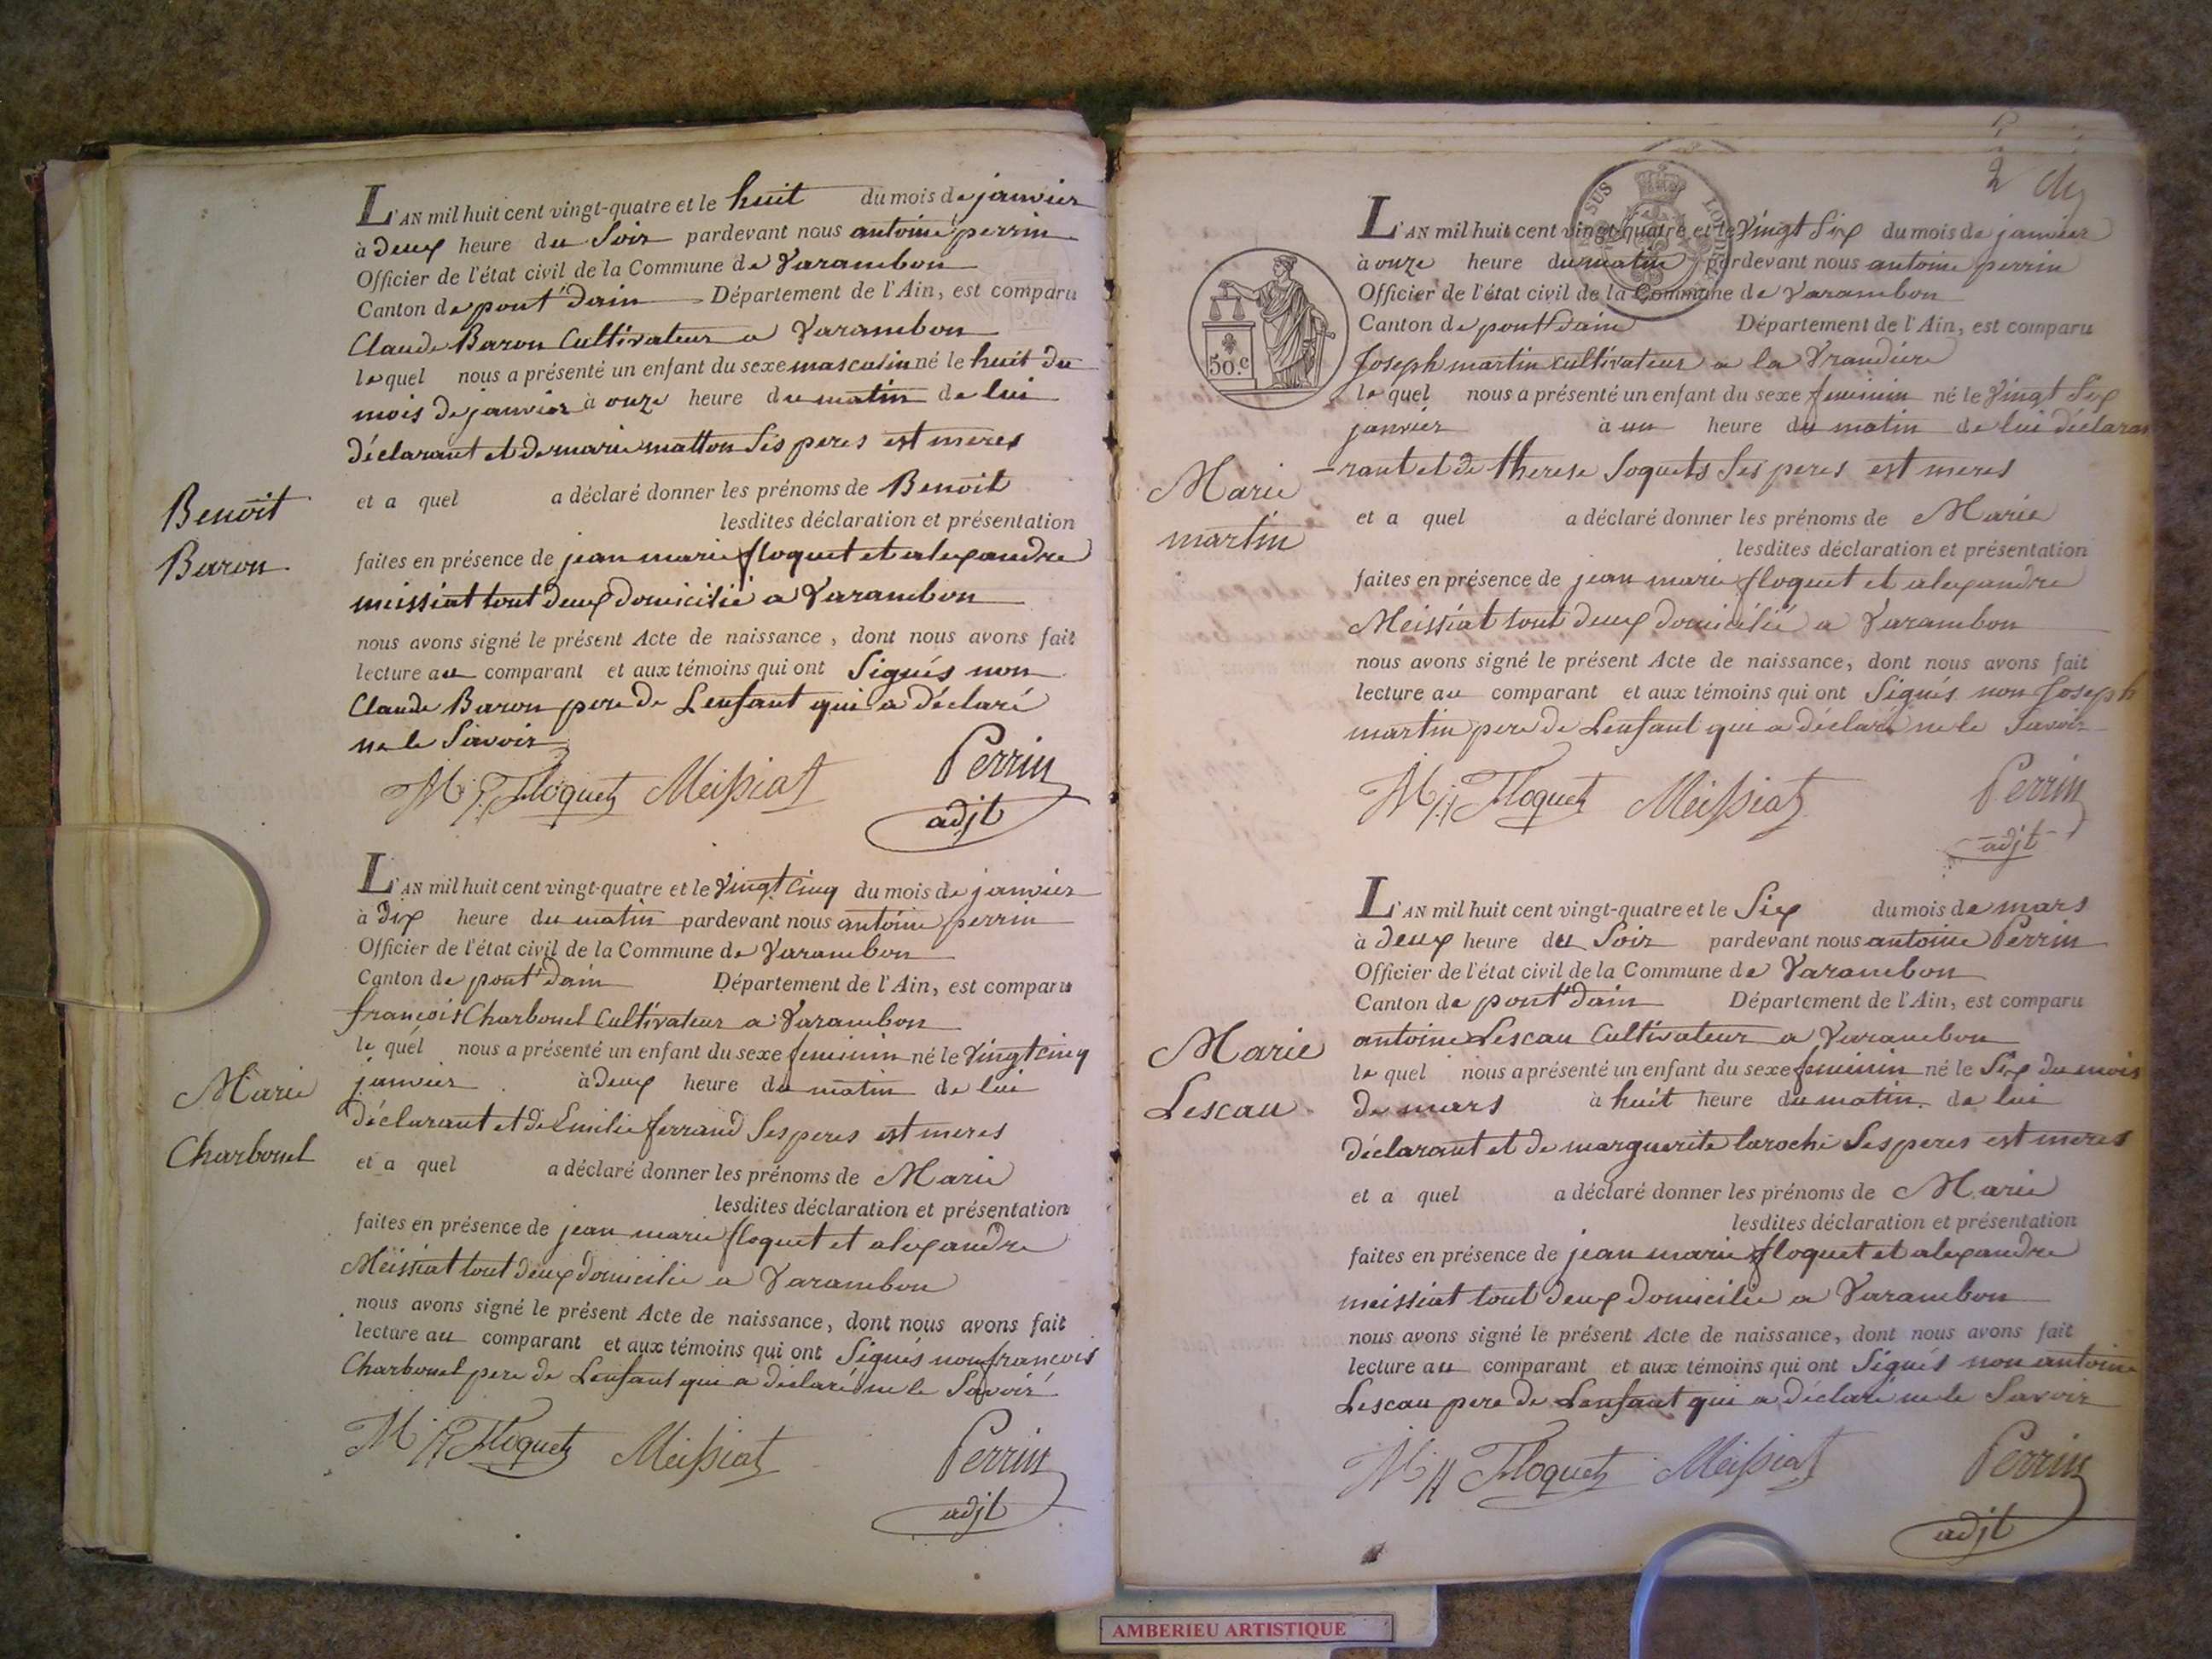 L'AN mil huit cent vingt-quatre et le huit du mois de janvier
à deux heure du Soir pardevant nous antoine perrin
Officier de l'état civil de la Commune de Varambon
Canton de pont d'ain Département de l'Ain, est comparu
Claude Baron Cultivateur a Varambon
le quel nous a présenté un enfant du sexe masculin né le huit du
mois de janvier à onze heure du matin de lui
déclarant et de marie matton Ses peres est meres
et a quel a déclaré donner les prénoms de Benoit
lesdites déclaration et présentation
faites en présence de jean marie floquet et alexandre
meissiat tout deux domicilié a Varambon
nous avons signé le présent Acte de naissance, dont nous avons fait
lecture au comparant et aux témoins qui ont Signés non
Claude Baron pere de Lenfant qui a déclaré
ne le Savoir
Floquet Meissiat Perrin
adjt
Benoit
Baron
L'AN mil huit cent vingt-quatre et le Vingt Cinq du mois de janvier
à dix heure du matin pardevant nous antoine perrin
Officier de l'état civil de la Commune de Varambon
Canton de pont d'ain Département de l'Ain, est comparu
françois Charbonel Cultivateur a Varambon
le quel nous a présenté un enfant du sexe feminin né le Vingt Cinq
janvier à deux heure du matin de lui
déclarant et de Emilie ferrand Ses peres est meres
et a quel a déclaré donner les prénoms de Marie
lesdites déclaration et présentation
faites en présence de jean marie floquet et alexandre
Meissiat tout deux domicilié a Varambon
nous avons signé le présent Acte de naissance, dont nous avons fait
lecture au comparant et aux témoins qui ont Signés non françois
Charbonel pere de Lenfant qui a déclaré ne le Savoir
Floquet Meissiat Perrin
adjt
Marie
Charbonel
2
SUS
50.c
L'AN mil huit cent vingt-quatre et le Vingt Six du mois de janvier
à onze heure du matin pardevant nous antoine perrin
Officier de l'état civil de la Commune de Varambon
Canton de pont d'ain Département de l'Ain, est comparu
Joseph martin cultivateur a la Vrandiere
le quel nous a présenté un enfant du sexe feminin né le Vingt Six
janvier à un heure du matin de lui déclaran
-rant et de therese Soquets Ses peres est meres
et a quel a déclaré donner les prénoms de Marie
lesdites déclaration et présentation
faites en présence de jean marie floquet et alexandre
Meissiat tout deux domicilié a Varambon
nous avons signé le présent Acte de naissance, dont nous avons fait
lecture au comparant et aux témoins qui ont Signés non Joseph
martin pere de Lenfant qui a déclaré ne le Savoir
Floquet Meissiat Perrin
adjt
Marie
martin
L'AN mil huit cent vingt-quatre et le Six du mois de mars
à deux heure du Soir pardevant nous antoine Perrin
Officier de l'état civil de la Commune de Varambon
Canton de pont d'ain Département de l'Ain, est comparu
antoine Lescau Cultivateur a Varambon
le quel nous a présenté un enfant du sexe feminin né le Six du mois
de mars à huit heure du matin de lui
déclarant et de marguerite laroche Ses peres est meres
et a quel a déclaré donner les prénoms de Marie
lesdites déclaration et présentation
faites en présence de jean marie floquet et alexandre
meissiat tout deux domicilié a Varambon
nous avons signé le présent Acte de naissance, dont nous avons fait
lecture au comparant et aux témoins qui ont Signés non antoine
Lescau pere de Lenfant qui a déclaré ne le Savoir
Floquet Meissiat Perrin
adjt
Marie
Lescau
AMBERIEU ARTISTIQUE